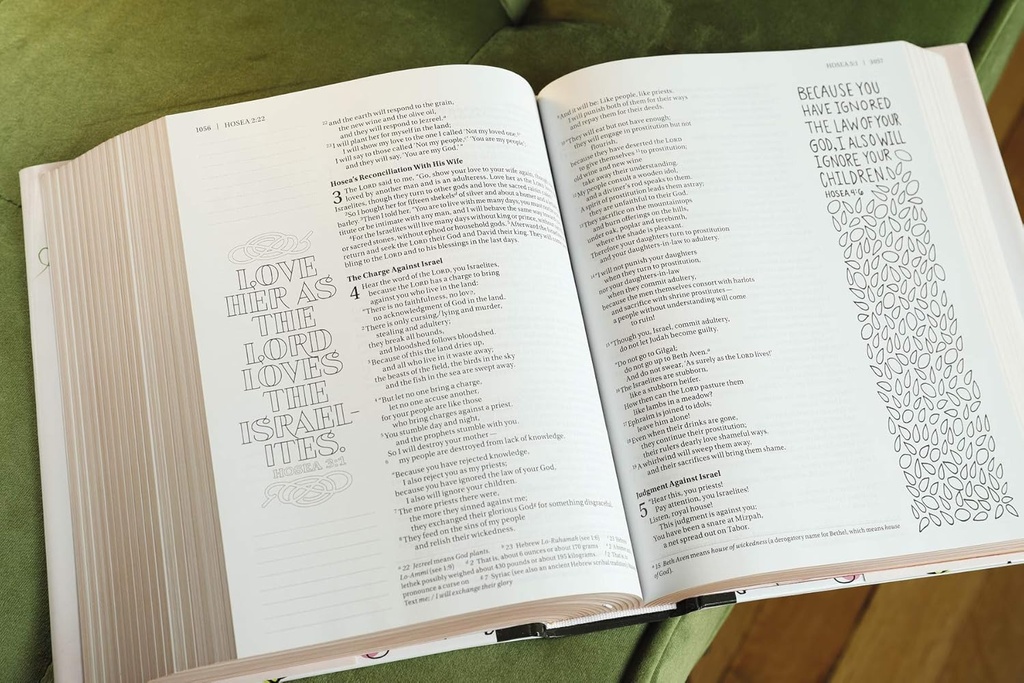 1056 | HOSEA 2:22
22 and the earth will respond to the grain,
the new wine and the olive oil,
and they will respond to Jezreel.
23 I will plant her for myself in the land;
I will show my love to the one I called ‘Not my loved one.’
I will say to those called ‘Not my people,’ ‘You are my people’;
and they will say, ‘You are my God.’”
Hosea’s Reconciliation With His Wife
3 The LORD said to me, “Go, show your love to your wife again, though she is
loved by another man and is an adulteress. Love her as the LORD loves the
Israelites, though they turn to other gods and love the sacred raisin cakes.”
2 So I bought her for fifteen shekels of silver and about a homer and a lethek of
barley. 3 Then I told her, “You are to live with me many days; you must not be a prosti-
tute or be intimate with any man, and I will behave the same way toward you.”
4 For the Israelites will live many days without king or prince, without sacrifice
or sacred stones, without ephod or household gods. 5 Afterward the Israelites will
return and seek the LORD their God and David their king. They will come trem-
bling to the LORD and to his blessings in the last days.
The Charge Against Israel
4 Hear the word of the LORD, you Israelites,
because the LORD has a charge to bring
against you who live in the land:
“There is no faithfulness, no love,
no acknowledgment of God in the land.
2 There is only cursing, lying and murder,
stealing and adultery;
they break all bounds,
and bloodshed follows bloodshed.
3 Because of this the land dries up,
and all who live in it waste away;
the beasts of the field, the birds in the sky
and the fish in the sea are swept away.
4 “But let no one bring a charge,
let no one accuse another,
for your people are like those
who bring charges against a priest.
5 You stumble day and night,
and the prophets stumble with you.
So I will destroy your mother—
6 my people are destroyed from lack of knowledge.
“Because you have rejected knowledge,
I also reject you as my priests;
because you have ignored the law of your God,
I also will ignore your children.
7 The more priests there were,
the more they sinned against me;
they exchanged their glorious God for something disgraceful.
8 They feed on the sins of my people
and relish their wickedness.
22 Jezreel means God plants. 23 Hebrew Lo-Ruhamah (see 1:6) 23 Hebrew
Lo-Ammi (see 1:9) 2 That is, about 6 ounces or about 170 grams
lethek possibly weighed about 430 pounds or about 195 kilograms.
pronounce a curse on 7 Syriac (see also an ancient Hebrew scribal tradition)
Text me; / I will exchange their glory
LOVE
HER AS
THE
LORD
LOVES
THE
ISRAEL-
ITES.
HOSEA 3:1
HOSEA 5:1 | 1057
9 And it will be: Like people, like priests.
I will punish both of them for their ways
and repay them for their deeds.
10 “They will eat but not have enough;
they will engage in prostitution but not
flourish,
because they have deserted the LORD
to give themselves 11 to prostitution;
old wine and new wine
take away their understanding.
12 My people consult a wooden idol,
and a diviner’s rod speaks to them.
A spirit of prostitution leads them astray;
they are unfaithful to their God.
13 They sacrifice on the mountaintops
and burn offerings on the hills,
under oak, poplar and terebinth,
where the shade is pleasant.
Therefore your daughters turn to prostitution
and your daughters-in-law to adultery.
14 “I will not punish your daughters
when they turn to prostitution,
nor your daughters-in-law
when they commit adultery,
because the men themselves consort with harlots
and sacrifice with shrine prostitutes—
a people without understanding will come
to ruin!
15 “Though you, Israel, commit adultery,
do not let Judah become guilty.
“Do not go to Gilgal;
do not go up to Beth Aven.
And do not swear, ‘As surely as the LORD lives!’
16 The Israelites are stubborn,
like a stubborn heifer.
How then can the LORD pasture them
like lambs in a meadow?
17 Ephraim is joined to idols;
leave him alone!
18 Even when their drinks are gone,
they continue their prostitution;
their rulers dearly love shameful ways.
19 A whirlwind will sweep them away,
and their sacrifices will bring them shame.
Judgment Against Israel
5 “Hear this, you priests!
Pay attention, you Israelites!
Listen, royal house!
This judgment is against you:
You have been a snare at Mizpah,
a net spread out on Tabor.
15 Beth Aven means house of wickedness (a derogatory name for Bethel, which means house
of God).
BECAUSE YOU
HAVE IGNORED
THE LAW OF YOUR
GOD, I ALSO WILL
IGNORE YOUR
CHILDREN.
HOSEA 4:6